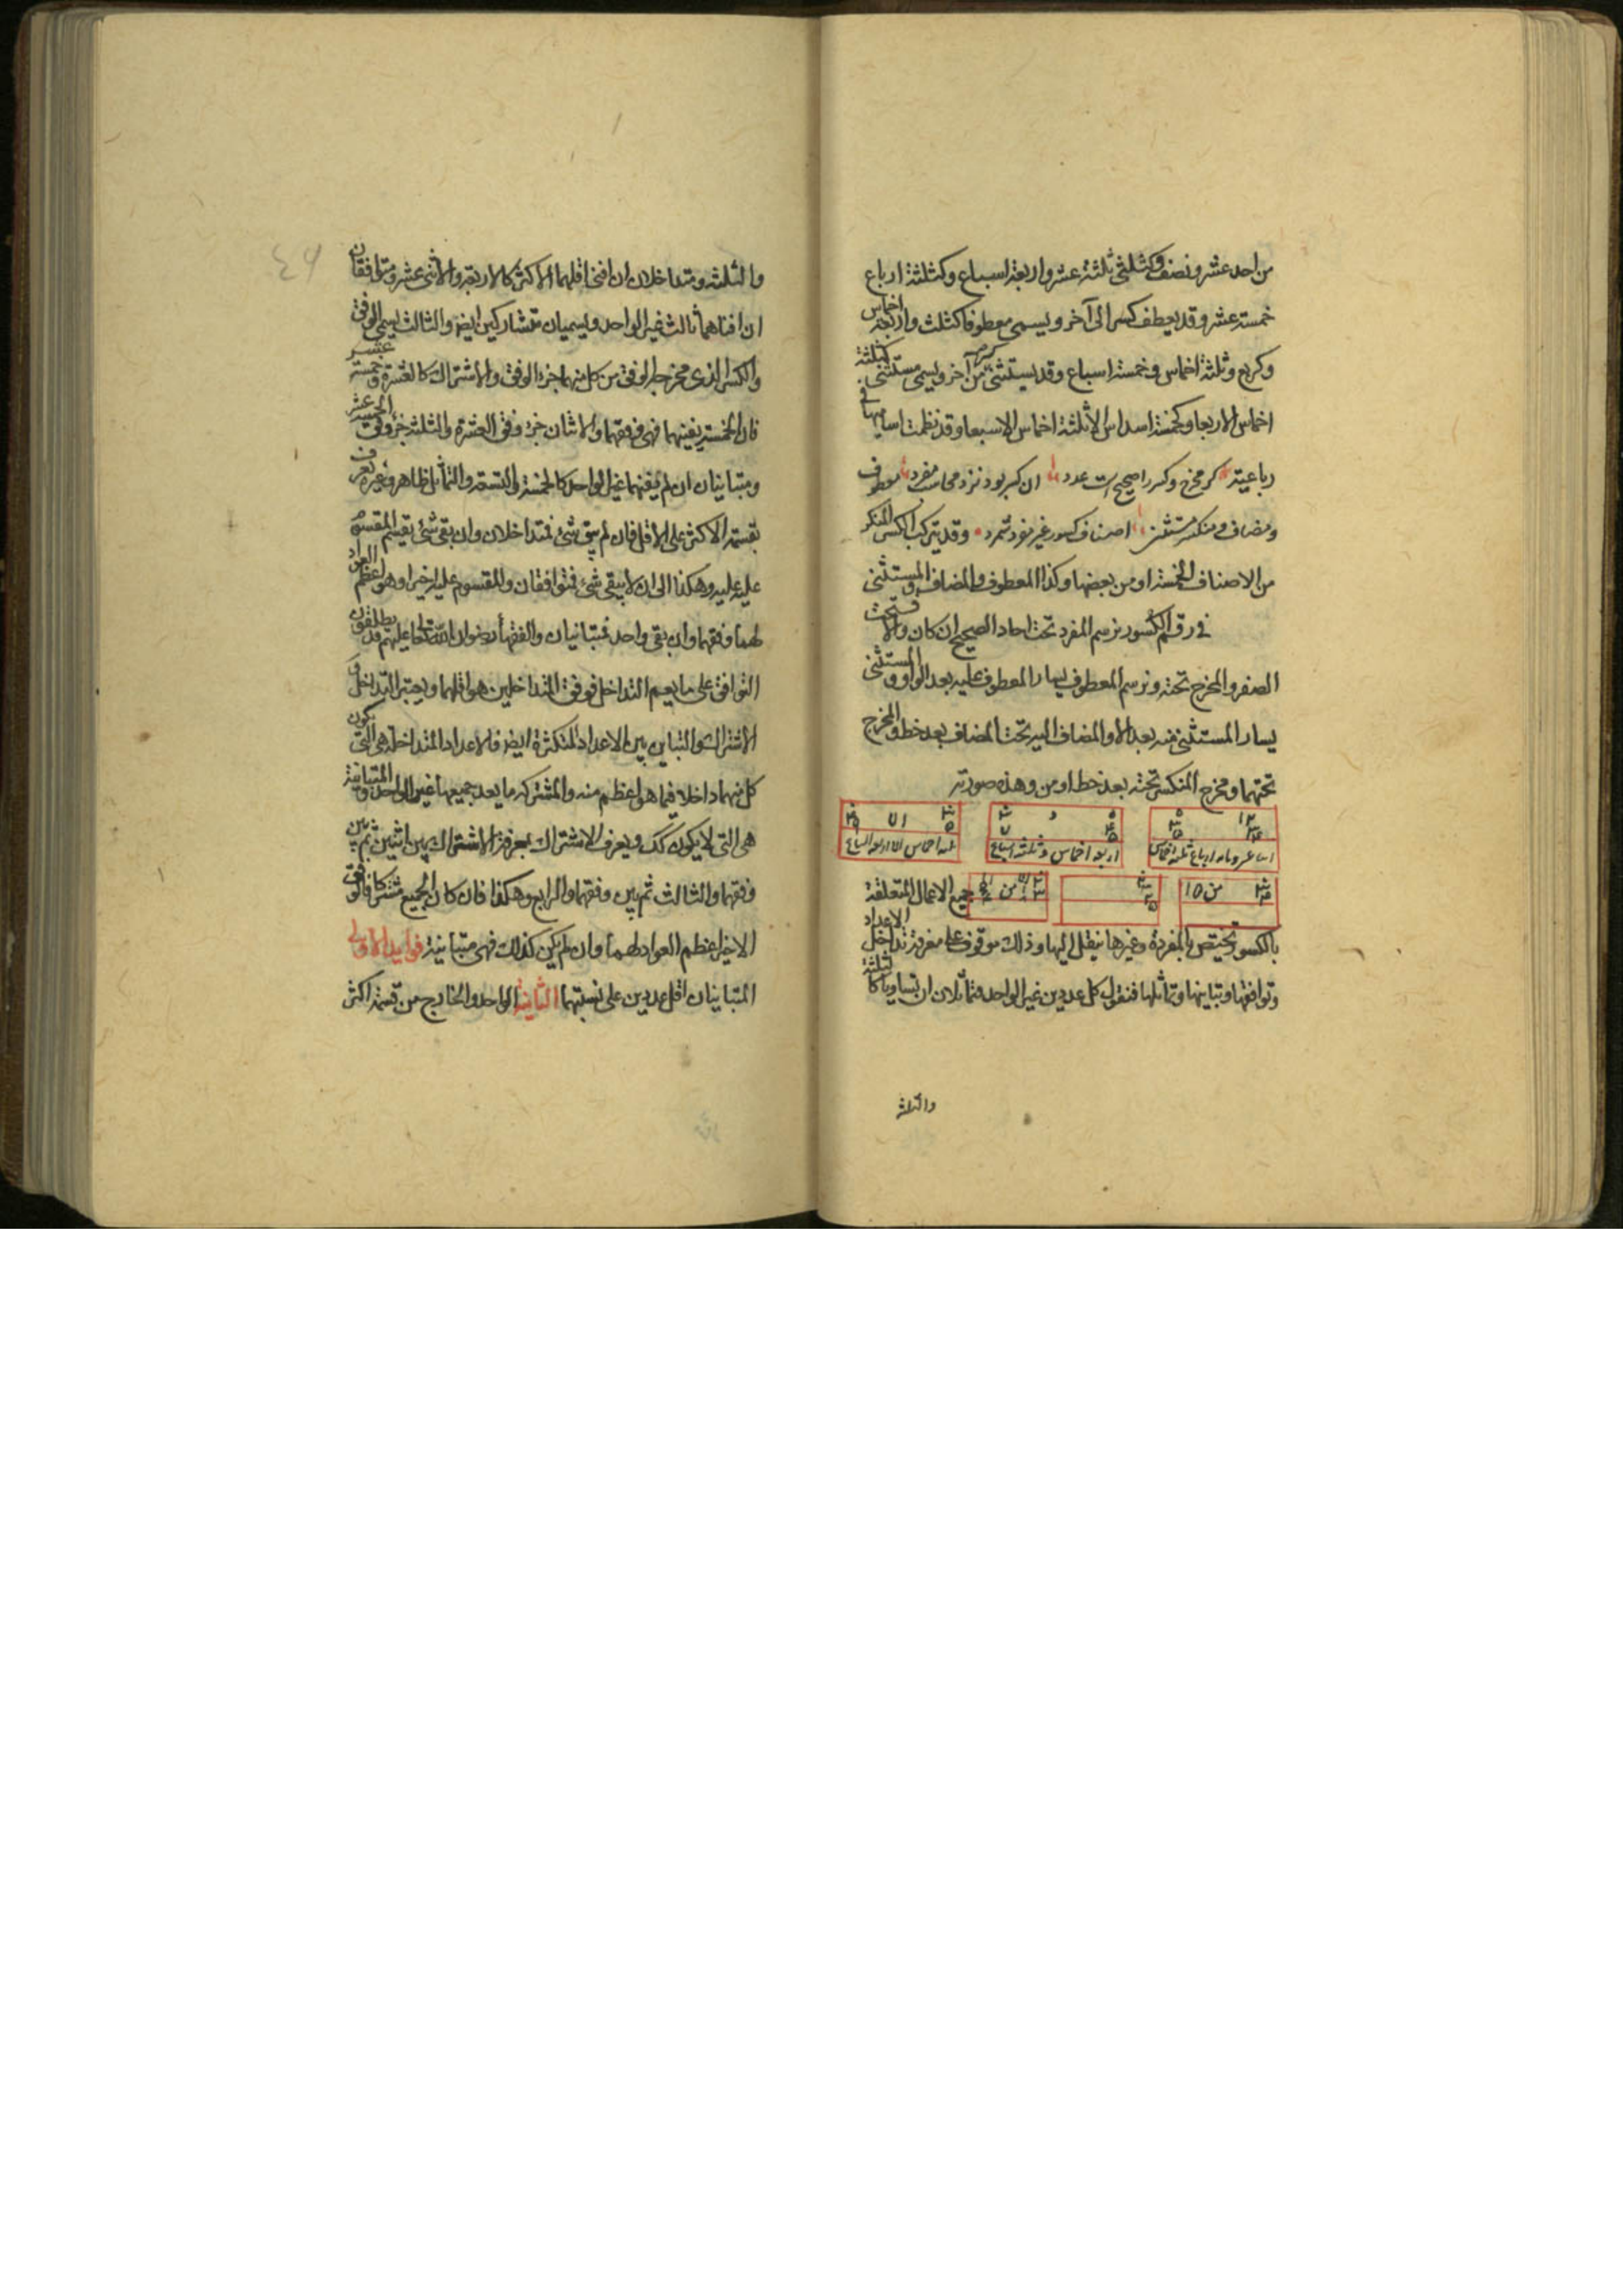 من احد عشر ونصف وكثلثي ثلثة عشر واربعة اسباع وكثلثة ارباع
خمسة عشر وقد يعطف كسر الى آخر ويسمى معطوفا كثلث واربعة اخماس
وكربع وثلثة اخماس وخمسة اسباع وقد يستثنى كسر من آخر ويسمى مستثنى كثلثة
اخماس الا ربعا وكخمسة اسداس الا ثلثة اخماس الا سبعا وقد نظمت اساميها في
رباعية كسر مخرج وكسر را صحيح است عدد ان كسر بود نزد محاسب مفرد معطوف
ومضاف ومنكسر مستثنى اصناف كسور غير نفود شمرد وقد يتركب الكسر المنكر
من الاصناف الخمسة او من بعضها وكذا المعطوف والمضاف والمستثنى
في رقم الكسور نرسم المفرد تحت احاد الصحيح ان كان والا فتحت
الصفر والمخرج تحته ونرسم المعطوف يسار المعطوف عليه بعد الواو والمستثنى
يسار المستثنى منه بعد الا والمضاف اليه تحت المضاف بعد خط والمخرج
تحتهما ومخرج المنكسر تحته بعد خط او من وهذه صورته
اربعة اخماس وثلثة اسباع
ثلثة اخماس الا اربعة اسباع
من ١٥
من
جميع الاعمال المتعلقة
بالكسور تختص بالمفردة وغيرها ينقل اليها وذلك موقوف على معرفة تداخل الاعداد
وتوافقها وتباينها وتماثلها فنقول كل عددين غير الواحد متماثلان ان تساويا كالثلثة
والثلثة
والثلثة ومتداخلان ان افنى اقلهما الاكثر كالاربعة والاثنى عشر ومتوافقان
ان افناهما ثالث غير الواحد ويسميان متشاركين ايضا والثالث يسمى الوفق
والكسر الذي مخرجه الوفق من كل منهما جزء الوفق والاشتراك كالعشرة وخمسة عشر
فان الخمسة يفنيهما فهي وفقهما والاثنان جزء وفق العشرة والثلثة جزء وفق الخمسة عشر
ومتباينان ان لم يفنهما غير الواحد كالخمسة والتسعة والتماثل ظاهر وغيره يعرف
بقسمة الاكثر على الاقل فان لم يبق شئ فمتداخلان وان بقى شئ يقسم المقسوم
عليه عليه وهكذا الى ان لا يبقى شئ فمتوافقان والمقسوم عليه اخيرا وهو اعظم العواد
لهما وفقهما وان بقى واحد فمتباينان والفقهاء رضوان الله تعالى عليهم قد يطلقون
التوافق على ما يعم التداخل فوفق المتداخلين هو اقلهما ويعتبر التداخل و
الاشتراك والتباين بين الاعداد المتكثرة ايضا فالاعداد المتداخلة هي التي يكون
كل منهما داخلا فيما هو اعظم منه والمشتركة ما يعد جميعها غير الواحد والمتباينة
هي التي لا يكون كك ويعرف الاشتراك بمعرفة الاشتراك بين اثنين ثم بين
وفقهما والثالث ثم بين وفقهما والرابع وهكذا فان كان الجميع مشتركا فالوفق
الاخير اعظم العواد لهما وان لم يكن كذلك فهي متباينة فوايد الاولى
المتباينان اقل عددين على نسبتهما الثانية الواحد والخارج من قسمة اكثر